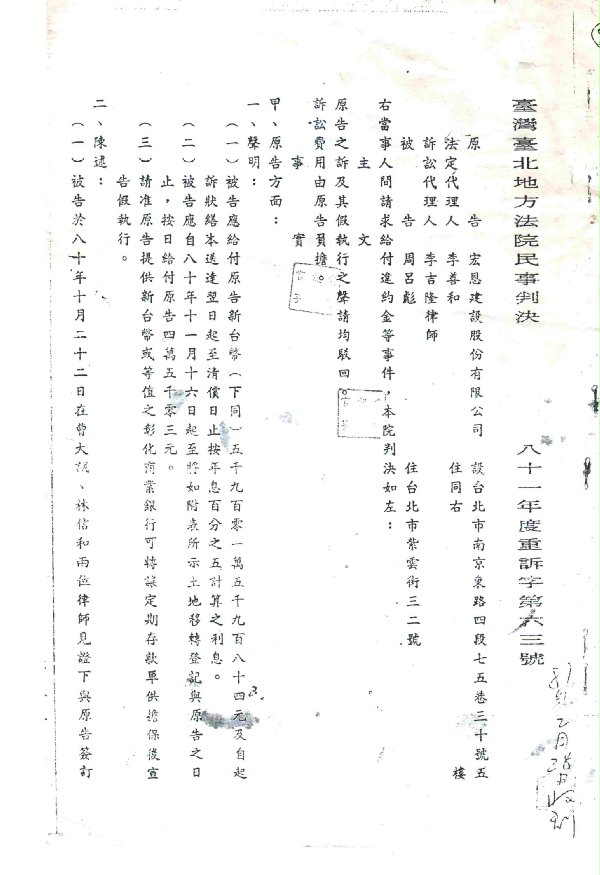 臺灣臺北地方法院民事判決　八十一年度重訴字第六三號
原告　宏恩建設股份有限公司　設台北市南京東路四段七五巷三十號五
樓
法定代理人　李善和　住同右
訴訟代理人　李吉隆律師
被告　周呂彪　住台北市紫雲街三二號
右當事人間請求給付違約金等事件，本院判決如左：
主文
原告之訴及其假執行之聲請均駁回。
訴訟費用由原告負擔。
事實
甲、原告方面：
一、聲明：
（一）被告應給付原告新台幣（下同）五千九百零一萬五千九百八十四元及自起
訴狀繕本送達翌日起至清償日止按年息百分之五計算之利息。
（二）被告應自八十年十一月十六日起至將如附表所示土地移轉登記與原告之日
止，按日給付原告四萬五千零三元。
（三）請准原告提供新台幣或等值之彰化商業銀行可轉讓定期存款單供擔保後宣
告假執行。
二、陳述：
（一）被告於八十年十月二十二日在曾大　、林信和兩位律師見證下與原告簽訂
月　日收到